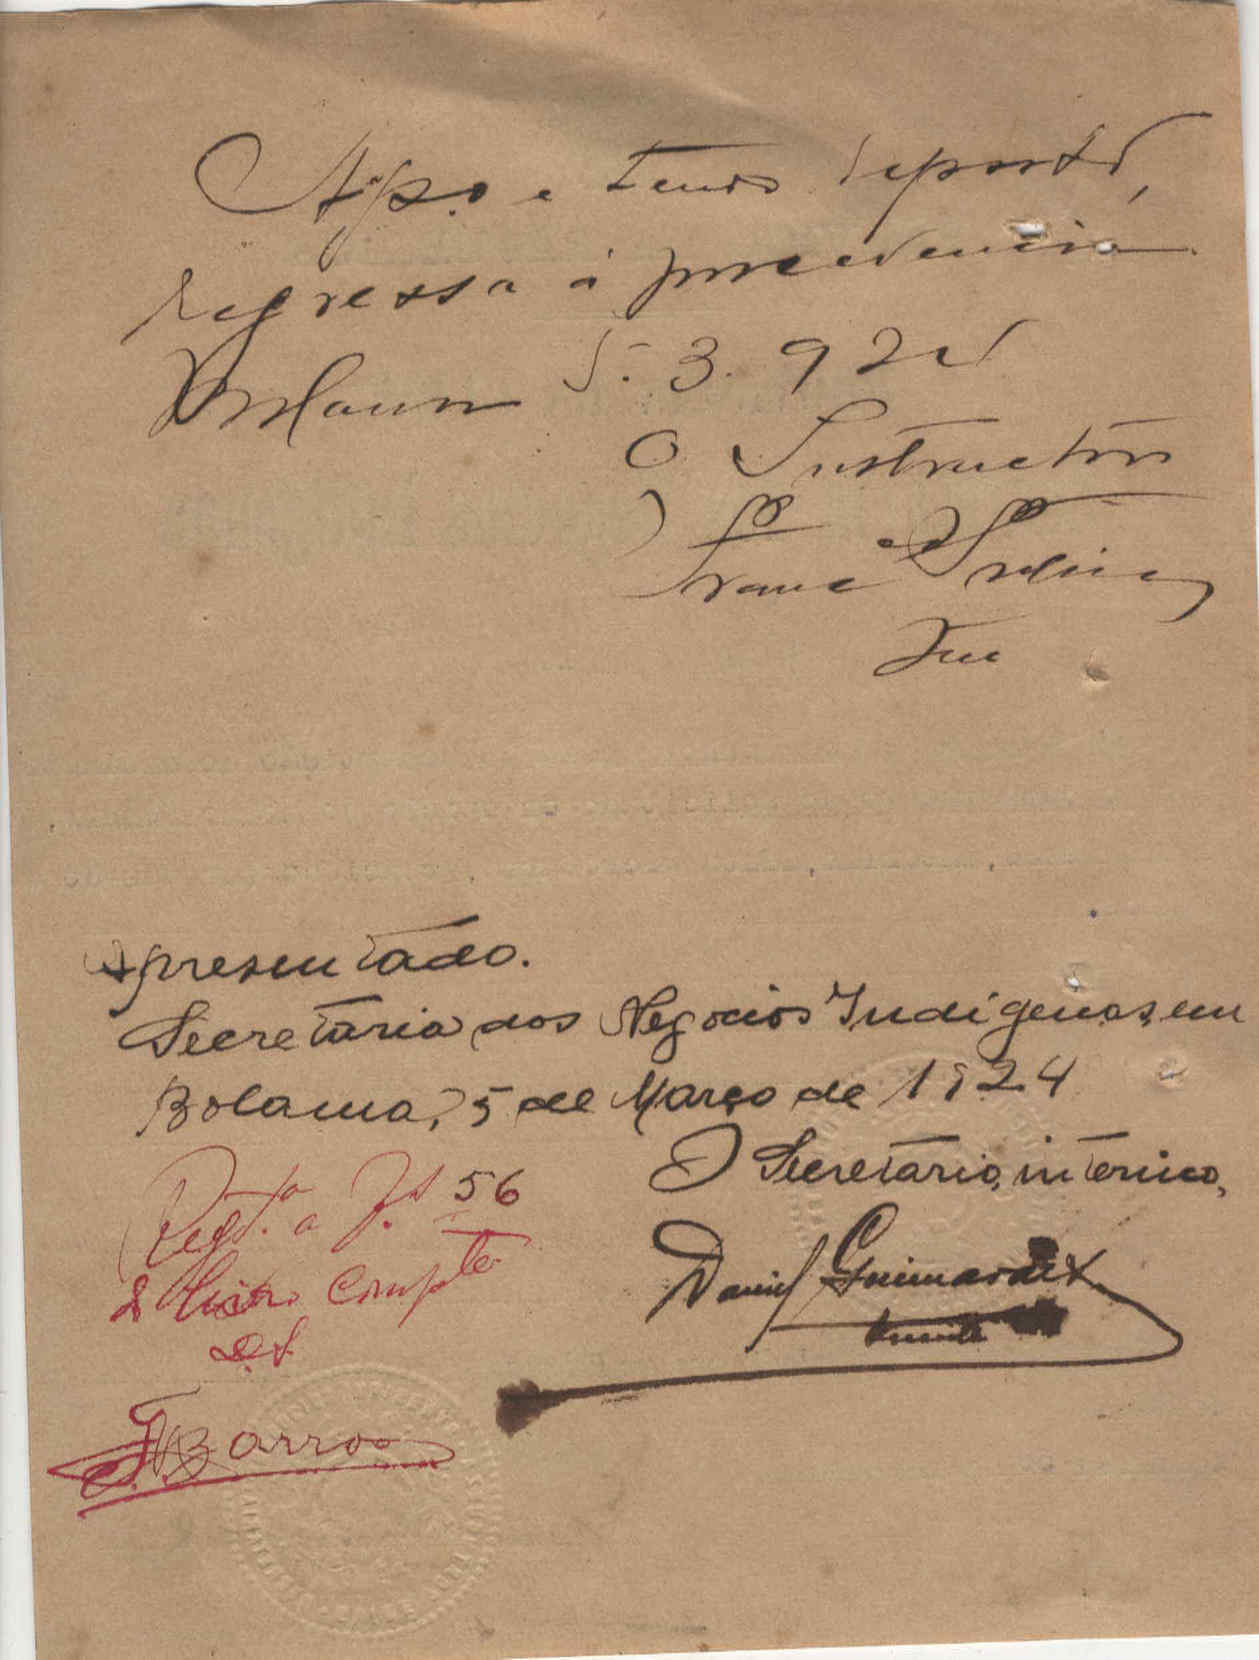 Ap.o e tendo deposto,
regressa á procedencia
Bolama 5.3.924
O Instructor
Apresentado.
Secretaria dos Negocios Indigenas, em
Bolama, 5 de Março de 1924
O Secretario, interino,
Daniel Guimarães
Reg.to a f.s 56
d livro compte
Barros